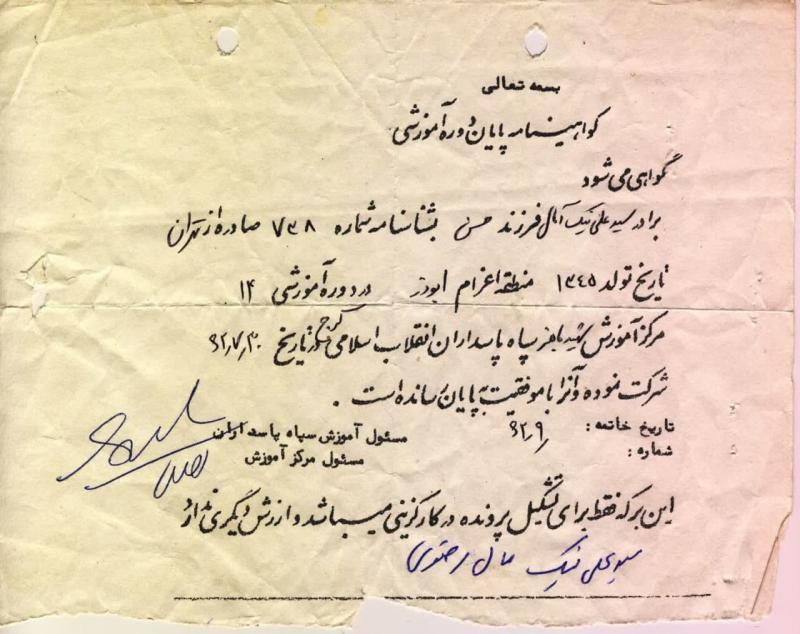 بسمه تعالی
گواهینامه پایان دوره آموزشی
گواهی می شود
برادر سید علی نیک آمال فرزند حسن بشناسنامه شماره ۷۳۸ صادره از تهران
تاریخ تولد ۱۳۴۵ منطقه اعزام ابوذر در دوره آموزشی ۱۴
مرکز آموزش سپاه پاسداران انقلاب اسلامی کرج تاریخ ۶۲٫۷٫۳۰
شرکت نموده و آنرا با موفقیت به پایان رسانده است .
تاریخ خاتمه : ۶۲٫۹٫
شماره :
مسئول آموزش سپاه پاسداران
مسئول مرکز آموزش
این برگه فقط برای تشکیل پرونده در کارگزینی میباشد و ارزش دیگری ندارد
سید علی نیک